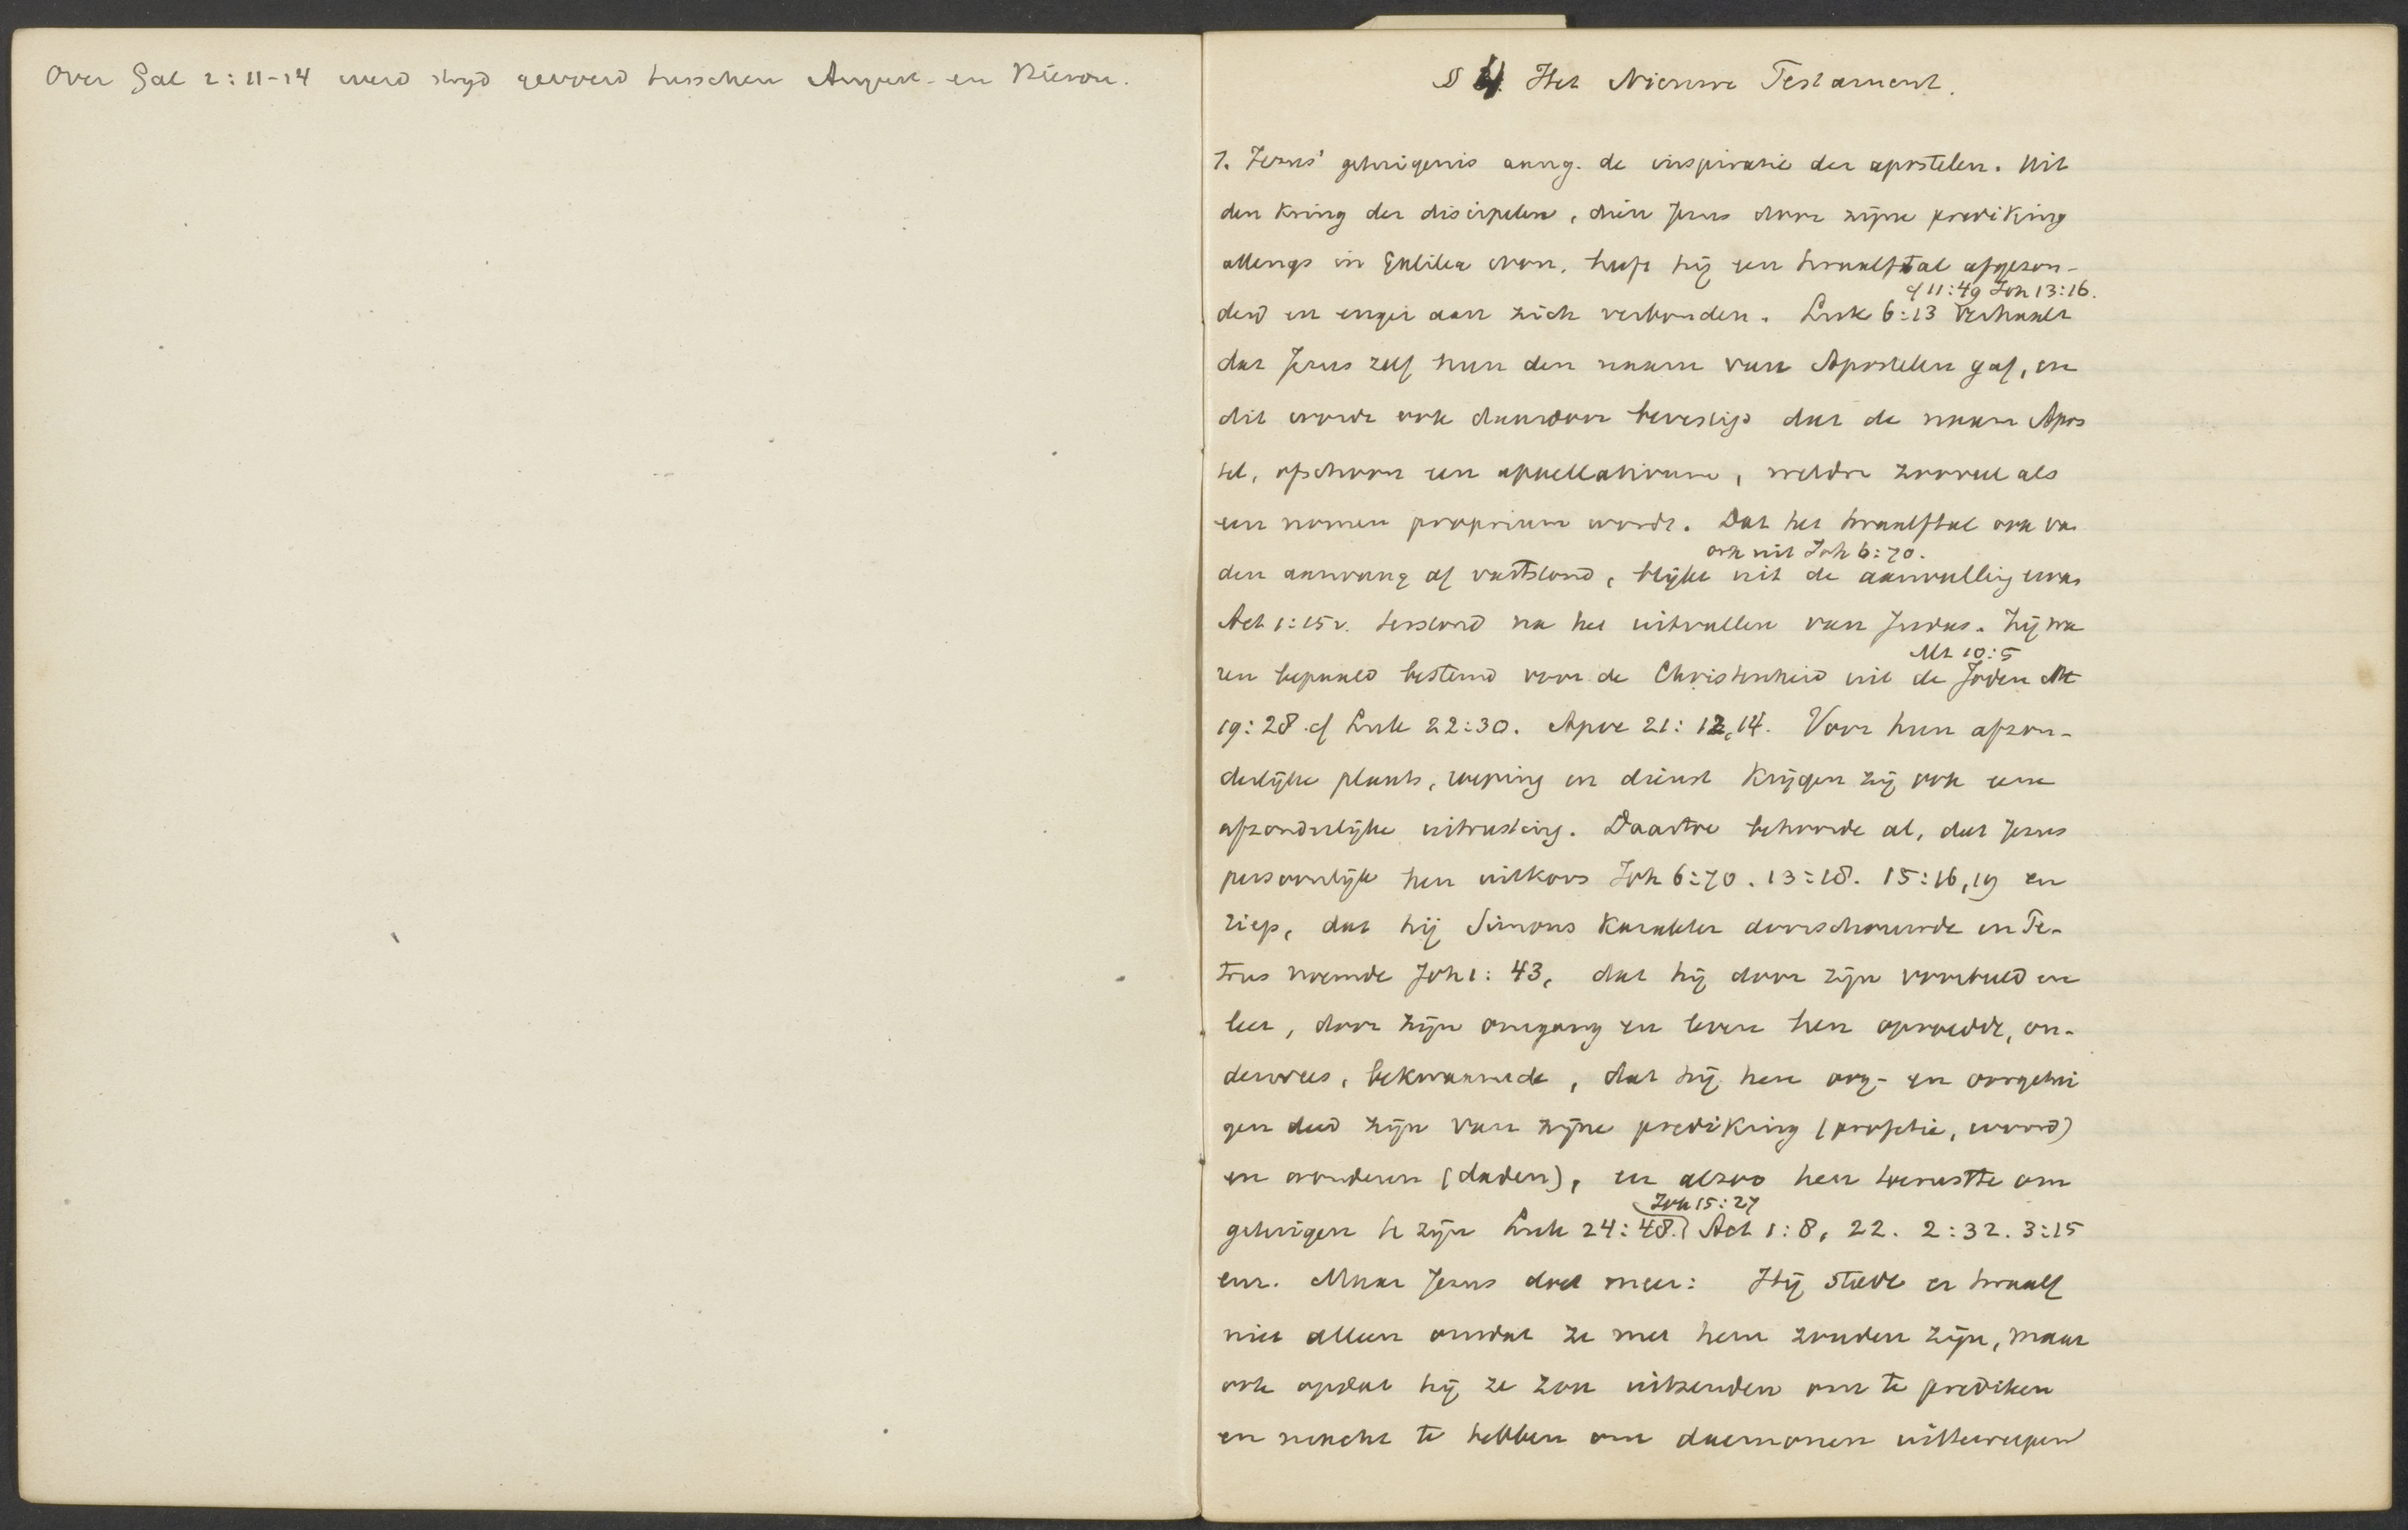 Over Gal 2:11-14 werd stryd gevoerd tusschen August. en Hieron.
§ 4. Het Nieuwe Testament.
1. Jezus' getuigenis aang. de inspiratie der apostelen. Uit
den kring der discipelen, dien Jezus door zijne prediking
allengs in Galilea won, heeft hij een twaalftal afgezon-
cf 11:49 Joh 13:16.
derd en enger aan zich verbonden. Luk 6:13 verhaalt
dat Jezus zelf hun den naam van Apostelen gaf, en
dit wordt ook daardoor bevestigd dat de naam Apos
tel, ofschoon een appellativum, weldra zooveel als
een nomen proprium wordt. Dat het twaalftal ook va
ook uit Joh 6:70.
den aanvang af vaststond, blijkt uit de aanvulling ervan
Act 1:15v. terstond na het uitvallen van Judas. Zij wa
Mt 10:5
ren bepaald bestemd voor de Christenheid uit de Joden Mt
19:28. cf Luk 22:30. Apoc 21:12,14. Voor hun afzon-
derlijke plaats, roeping en dienst krijgen zij ook eene
afzonderlijke uitrusting. Daartoe behoorde al, dat Jezus
persoonlijk hen uitkoos Joh 6:70. 13:18. 15:16,19 en
riep, dat hij Simons karakter doorschouwde en Pe-
trus noemde Joh 1:43, dat hij door zijn voorbeeld en
leer, door zijn omgang en leven hen opvoedde, on-
derwees, bekwaamde, dat hij hen oog- en oorgetui
gen deed zijn van zijne prediking (profetie, woord)
en wonderen (daden), en alzoo hen toerustte om
Joh 15:27
getuigen te zijn Luk 24:48. Act 1:8, 22. 2:32. 3:15
enz. Maar Jezus doet meer: Hij stelde er twaalf
niet alleen omdat ze met hem zouden zijn, maar
ook opdat hij ze zou uitzenden om te prediken
en macht te hebben om daemonen uittewerpen